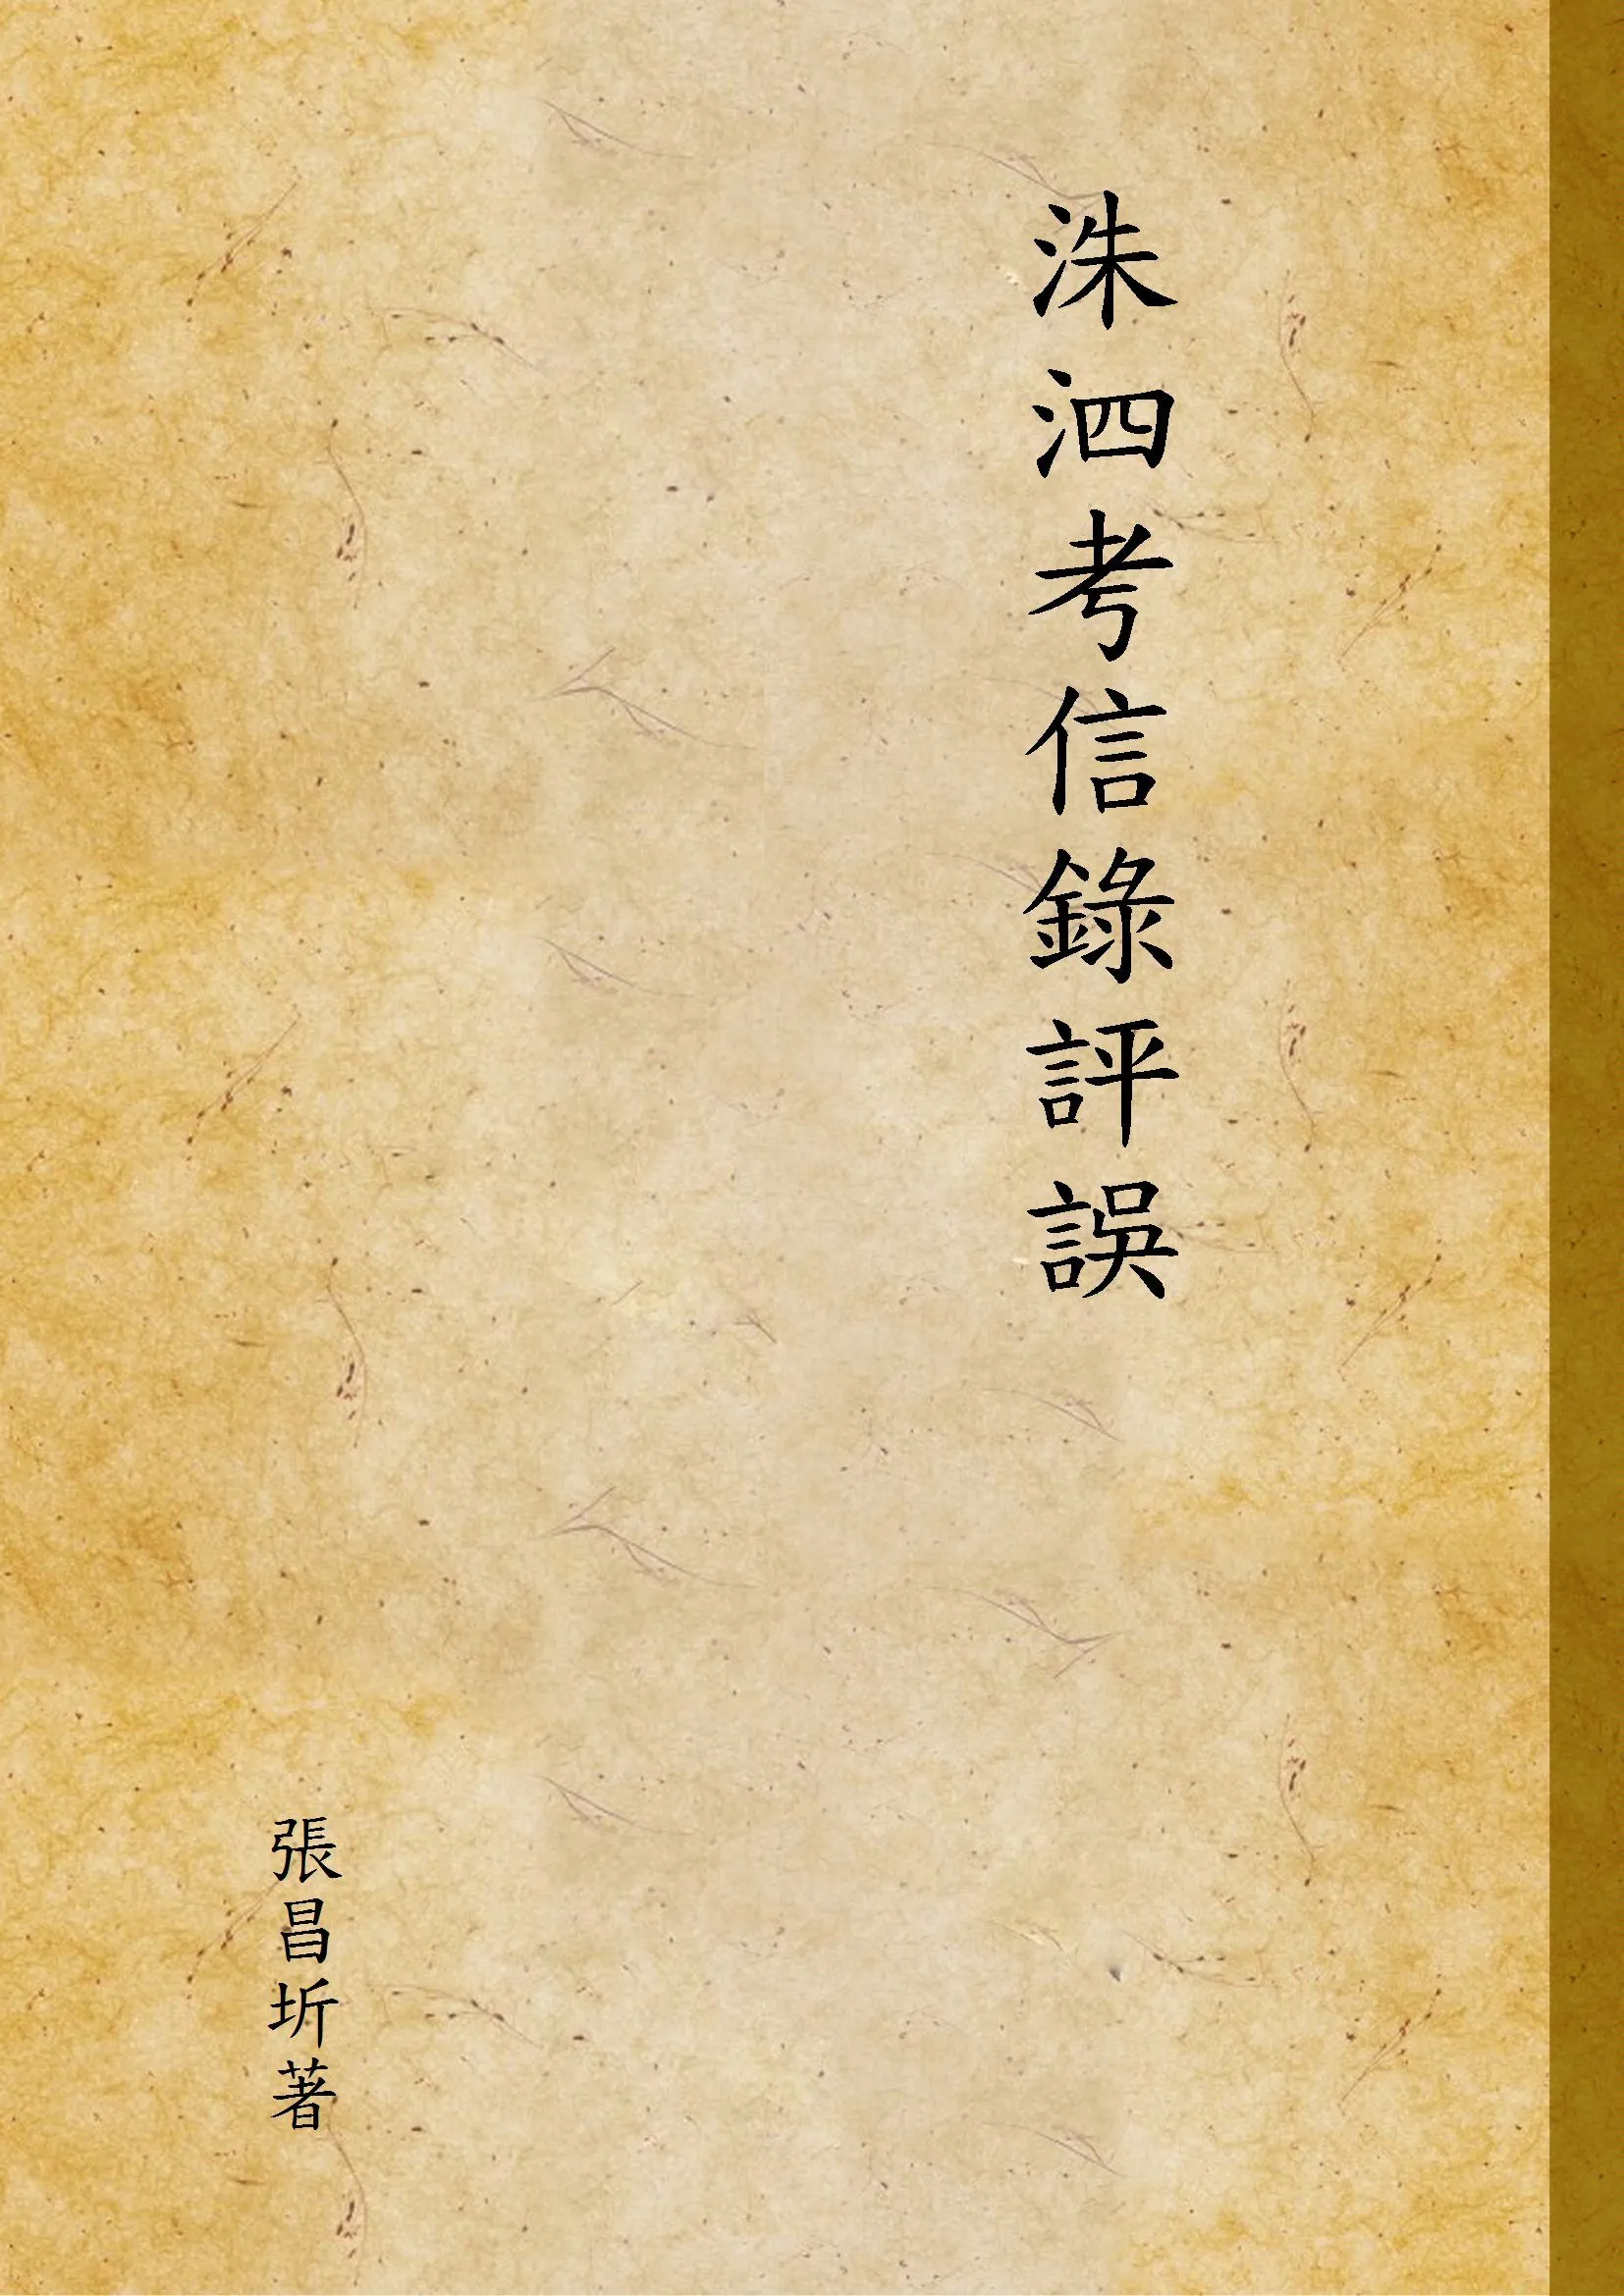 洙泗考信錄評誤
張昌圻著